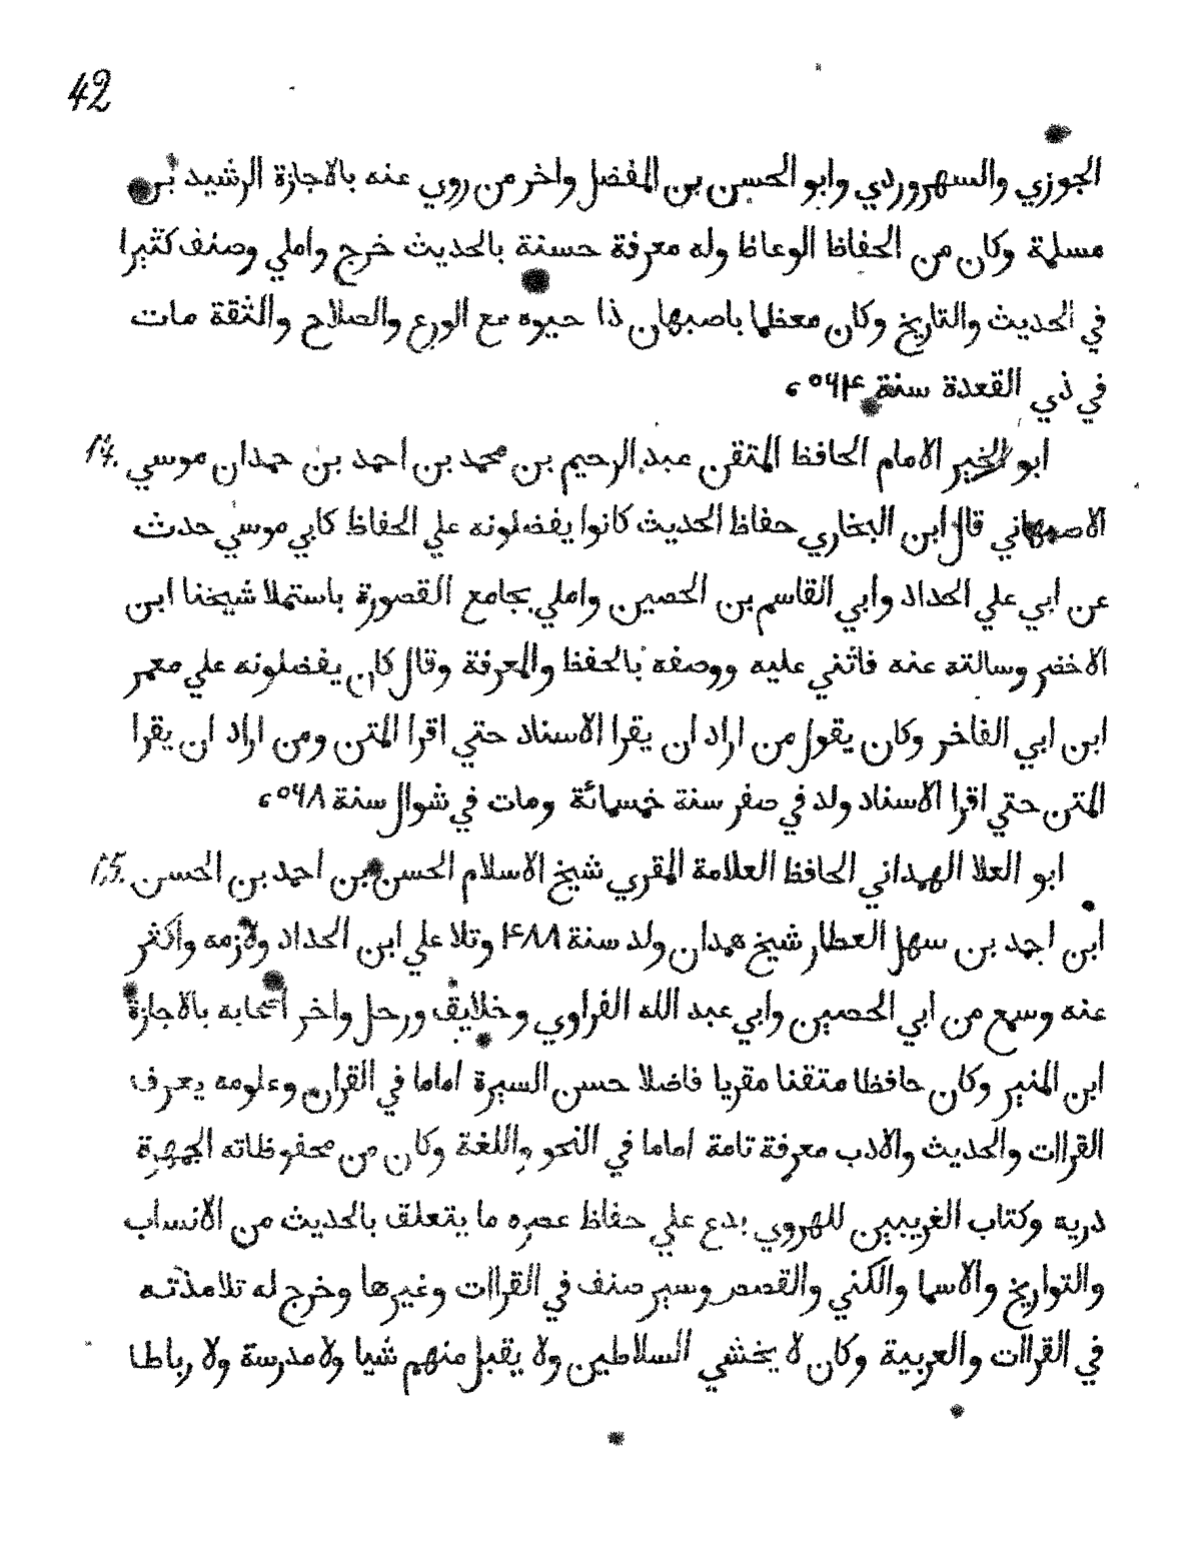 42
الجوزي والسهروردي وابو الحسن بن المفضل واخر من روي عنه بالاجازة الرشيد بن
مسلمة وكان من الحفاظ الوعاظ وله معرفة حسنة بالحديث خرج واملي وصنف كثيرا
في الحديث والتاريخ وكان معظما باصبهان ذا حيوه مع الورع والصلاح والثقة مات
في ذي القعدة سنة ٥٦۴ ء
14. ابو الخير الامام الحافظ المتقن عبد الرحيم بن محمد بن احمد بن حمدان موسي
الاصبهاني قال ابن البخاري حفاظ الحديث كانوا يفضلونه علي الحفاظ كابي موسي حدث
عن ابي علي الحداد وابي القاسم بن الحصين واملي بجامع القصورة باستملا شيخنا ابن
الاخضر وسالته عنه فاثني عليه ووصفه بالحفظ والمعرفة وقال كان يفضلونه علي معمر
ابن ابي الفاخر وكان يقول من اراد ان يقرا الاسناد حتي اقرا المتن ومن اراد ان يقرا
المتن حتي اقرا الاسناد ولد في صفر سنة خمسمائة ومات في شوال سنة ٥٦٨ ء
15. ابو العلا الهمداني الحافظ العلامة المقري شيخ الاسلام الحسن بن احمد بن الحسن
ابن احمد بن سهل العطار شيخ همدان ولد سنة ۴٨٨ وتلا علي ابن الحداد ولازمه واكثر
عنه وسمع من ابي الحصين وابي عبد الله الفراوي وخلايق ورحل واخر اصحابه بالاجازة
ابن المنير وكان حافظا متقنا مقريا فاضلا حسن السيرة اماما في القران وعلومه يعرف
القراات والحديث والادب معرفة تامة اماما في النحو واللغة وكان من محفوظاته الجمهرة
دريه وكتاب الغريبين للهروي بدع علي حفاظ عصره ما يتعلق بالحديث من الانساب
والتواريخ والاسما والكني والقصص وسير صنف في القراات وغيرها وخرج له تلامذته
في القراات والعربية وكان لا يخشي السلاطين ولا يقبل منهم شيا ولا مدرسة ولا رباطا